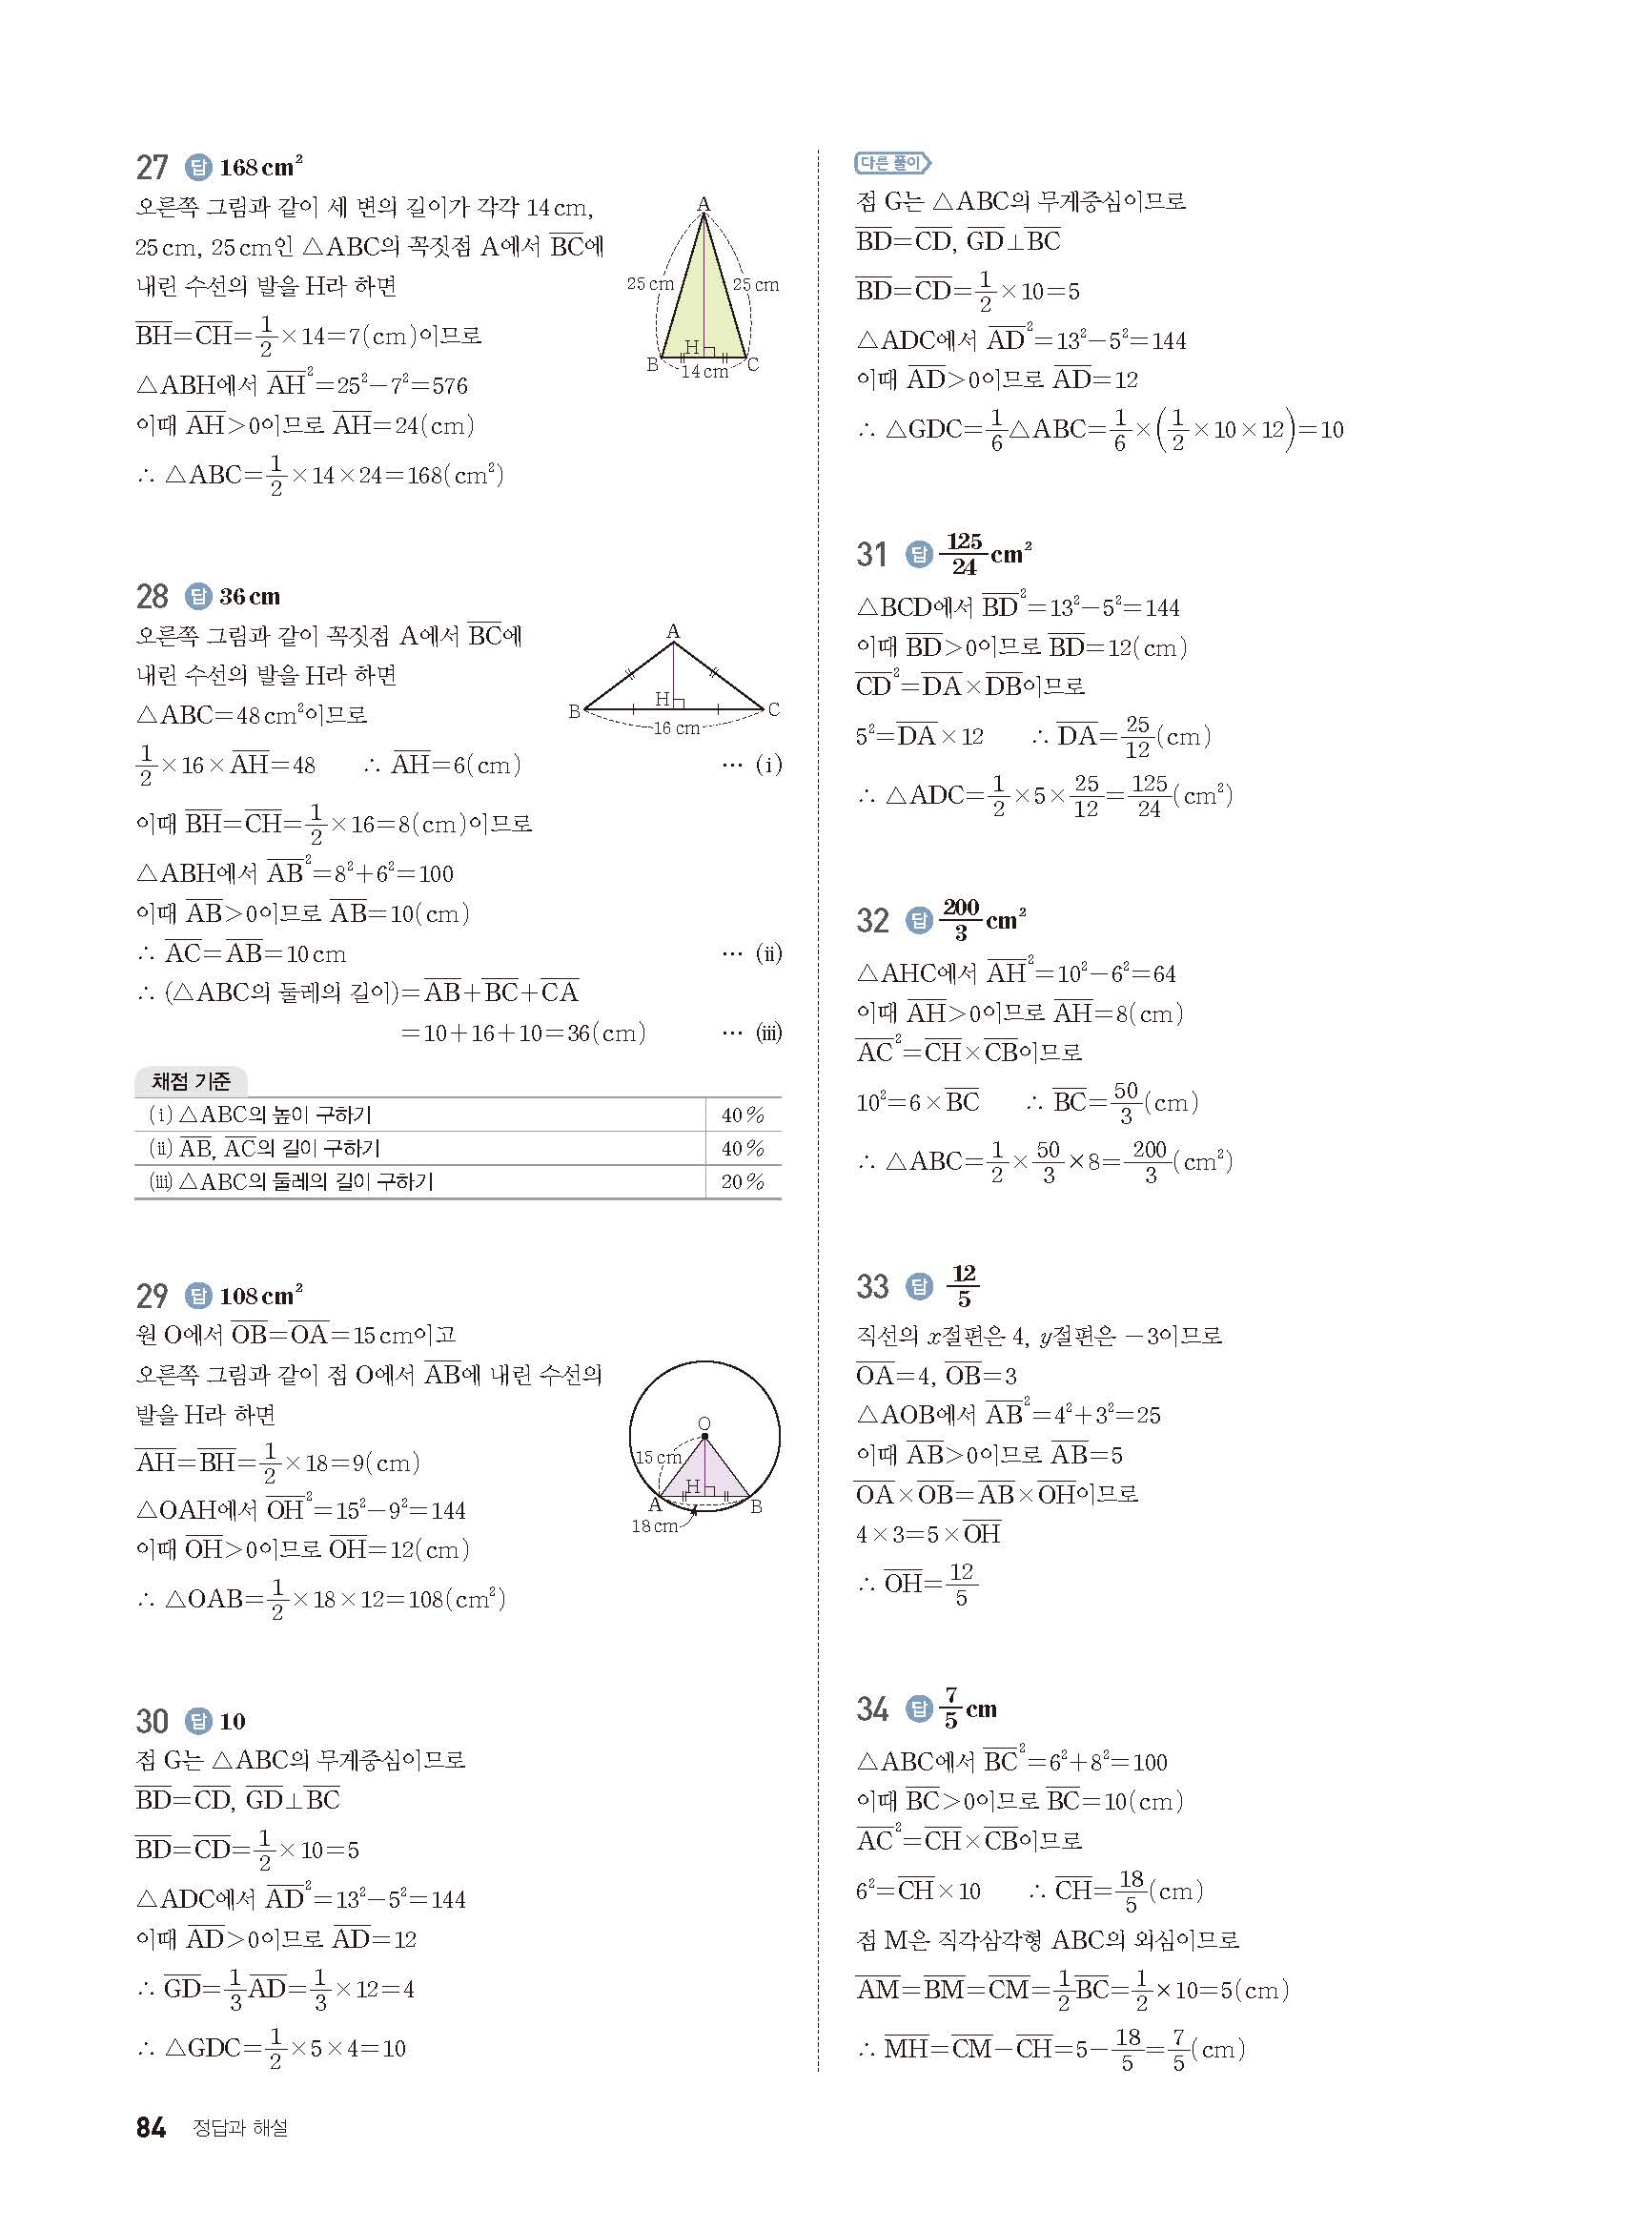 27 답 168cm²
오른쪽 그림과 같이 세 변의 길이가 각각 14cm,
25cm, 25cm인 △ABC의 꼭짓점 A에서 B̅C̅에
내린 수선의 발을 H라 하면
B̅H̅=C̅H̅=1/2×14=7(cm)이므로
△ABH에서 A̅H̅²=25²-7²=576
이때 A̅H̅>0이므로 A̅H̅=24(cm)
∴ △ABC=1/2×14×24=168(cm²)
A
25cm
25cm
H
B
14cm
C
28 답 36cm
오른쪽 그림과 같이 꼭짓점 A에서 B̅C̅에
내린 수선의 발을 H라 하면
△ABC=48cm²이므로
1/2×16×A̅H̅=48 ∴ A̅H̅=6(cm) … (ⅰ)
이때 B̅H̅=C̅H̅=1/2×16=8(cm)이므로
△ABH에서 A̅B̅²=8²+6²=100
이때 A̅B̅>0이므로 A̅B̅=10(cm)
∴ A̅C̅=A̅B̅=10cm … (ⅱ)
∴ (△ABC의 둘레의 길이)=A̅B̅+B̅C̅+C̅A̅
=10+16+10=36(cm) … (ⅲ)
A
H
B
C
16 cm
채점 기준
(ⅰ) △ABC의 높이 구하기 40%
(ⅱ) A̅B̅, A̅C̅의 길이 구하기 40%
(ⅲ) △ABC의 둘레의 길이 구하기 20%
29 답 108cm²
원 O에서 O̅B̅=O̅A̅=15cm이고
오른쪽 그림과 같이 점 O에서 A̅B̅에 내린 수선의
발을 H라 하면
A̅H̅=B̅H̅=1/2×18=9(cm)
△OAH에서 O̅H̅²=15²-9²=144
이때 O̅H̅>0이므로 O̅H̅=12(cm)
∴ △OAB=1/2×18×12=108(cm²)
O
15cm
H
A
B
18cm
30 답 10
점 G는 △ABC의 무게중심이므로
B̅D̅=C̅D̅, G̅D̅⊥B̅C̅
B̅D̅=C̅D̅=1/2×10=5
△ADC에서 A̅D̅²=13²-5²=144
이때 A̅D̅>0이므로 A̅D̅=12
∴ G̅D̅=1/3A̅D̅=1/3×12=4
∴ △GDC=1/2×5×4=10
다른 풀이
점 G는 △ABC의 무게중심이므로
B̅D̅=C̅D̅, G̅D̅⊥B̅C̅
B̅D̅=C̅D̅=1/2×10=5
△ADC에서 A̅D̅²=13²-5²=144
이때 A̅D̅>0이므로 A̅D̅=12
∴ △GDC=1/6△ABC=1/6×(1/2×10×12)=10
31 답 125/24cm²
△BCD에서 B̅D̅²=13²-5²=144
이때 B̅D̅>0이므로 B̅D̅=12(cm)
C̅D̅²=D̅A̅×D̅B̅이므로
5²=D̅A̅×12 ∴ D̅A̅=25/12(cm)
∴ △ADC=1/2×5×25/12=125/24(cm²)
32 답 200/3cm²
△AHC에서 A̅H̅²=10²-6²=64
이때 A̅H̅>0이므로 A̅H̅=8(cm)
A̅C̅²=C̅H̅×C̅B̅이므로
10²=6×B̅C̅ ∴ B̅C̅=50/3(cm)
∴ △ABC=1/2×50/3×8=200/3(cm²)
33 답 12/5
직선의 x절편은 4, y절편은 -3이므로
O̅A̅=4, O̅B̅=3
△AOB에서 A̅B̅²=4²+3²=25
이때 A̅B̅>0이므로 A̅B̅=5
O̅A̅×O̅B̅=A̅B̅×O̅H̅이므로
4×3=5×O̅H̅
∴ O̅H̅=12/5
34 답 7/5cm
△ABC에서 B̅C̅²=6²+8²=100
이때 B̅C̅>0이므로 B̅C̅=10(cm)
A̅C̅²=C̅H̅×C̅B̅이므로
6²=C̅H̅×10 ∴ C̅H̅=18/5(cm)
점 M은 직각삼각형 ABC의 외심이므로
A̅M̅=B̅M̅=C̅M̅=1/2B̅C̅=1/2×10=5(cm)
∴ M̅H̅=C̅M̅-C̅H̅=5-18/5=7/5(cm)
84 정답과 해설